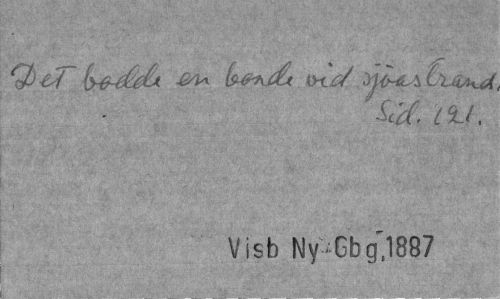 Det bodde en bonde vid sjöastrand.
Sid. 121.
Visb Ny Gbg, 1887